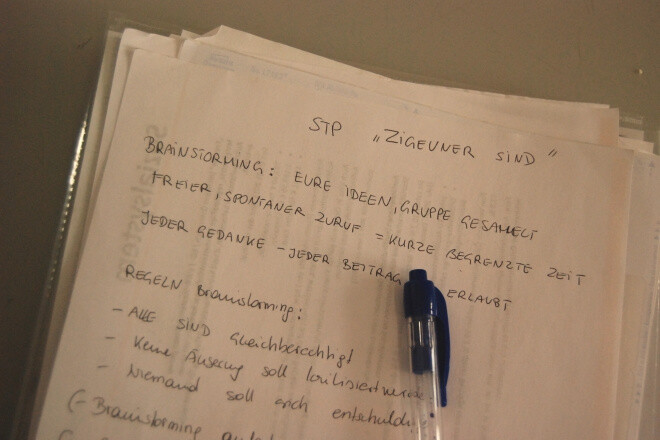 STP „ZIGEUNER SIND"
BRAINSTORMING: EURE IDEEN, GRUPPE GESAMMELT
FREIER, SPONTANER ZURUF = KURZE BEGRENZTE ZEIT
JEDER GEDANKE - JEDER BEITRAG ERLAUBT
REGELN Brainstorming:
- ALLE SIND Gleichberechtigt
- Keine Äuserung soll
- Niemand soll sich
(- Brainstorming